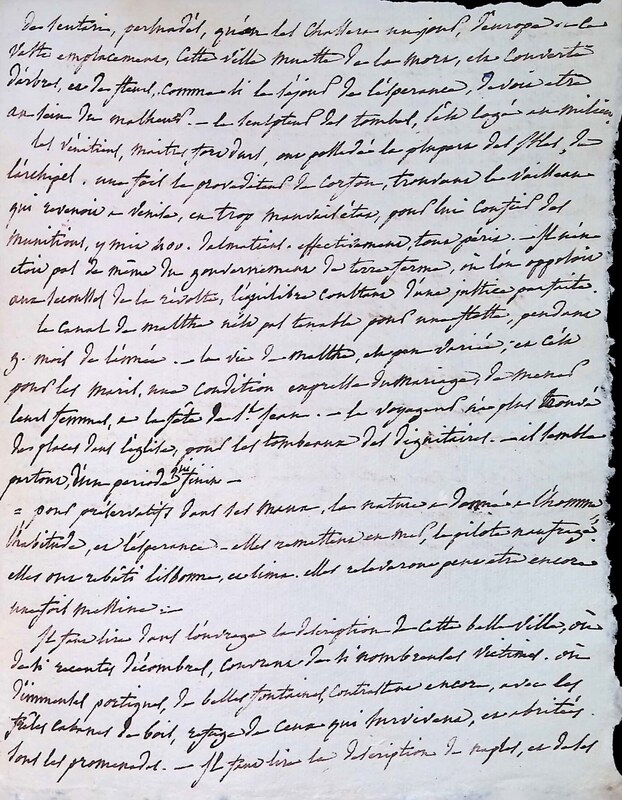 de scutari, persuadés, qu'on les chassera un jour, d'europe — Ce
vaste emplacement, Cette ville muette de la mort, est Couverte
d'arbres, et de fleurs, Comme si le séjour de l'espérance, devoit être
au sein du malheur. — le sculpteur des tombes, s'est logé au milieu
les vénitiens, maitres fort durs, ont possedé la plupart des isles, de
l'archipel. une fois le proveditеur de Corfou, trouvant le vaisseau
qui revenoit a venise, en trop mauvais état, pour lui Confier des
munitions, y mit 400. dalmatiens. effectivement, tout périt. — Il n'en
étoit pas de même du gouvernement de terre ferme, où l'on opposoit
aux secousses de la révolte, l'équilibre constant d'une justice parfaite.
le Canal de malthe n'est pas tenable pour une flotte, pendant
9. mois de l'année. — la vie de malthe, est peu variée; et c'est
pour les maris, une Condition expresse du mariage, de mener
leurs femmes, a la fête de St. jean. — le voyageur n'a plus trouvé
des places dans l'église, pour les tombeaux des dignitaires. — il semble
partout, d'un periode qui finit —
= pour préservatifs dans ses maux, la nature a donné a l'homme
l'habitude, et l'espérance — elles remettent en mer, le pilote naufragé
elles ont rebâti lisbonne, et lima. elles releveront peut être encore
une fois messine. =
Il faut lire dans l'ouvrage la description de Cette belle ville, où
de si recentes décombres, Couvrent de si nombreuses victimes. où
d'immenses portiques, de belles fontaines, Contrastent encore, avec les
frêles cabanes de bois, refuge de Ceux qui survivent, et abrités
sous les promenades. — Il faut lire la description de naples, et de ses